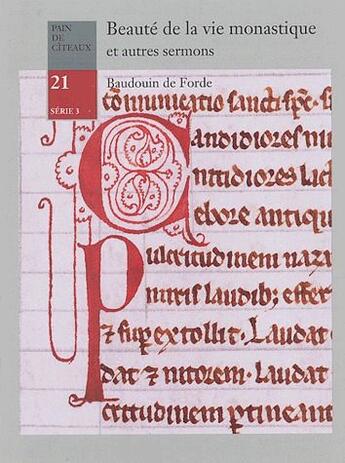 PAIN
DE
CÎTEAUX
21
SÉRIE 3
Beauté de la vie monastique
et autres sermons
Baudouin de Forde
cōmunicatio sancti sp̄c. si
Candidiores ni
nitidiores lac
ebore antiqu
Pulcritudinem nazu
miris laudib; effer
⁊ sup extollit. Laudat
dat ⁊ nitorem. Laudat
rectitudinem ꝑtine ant